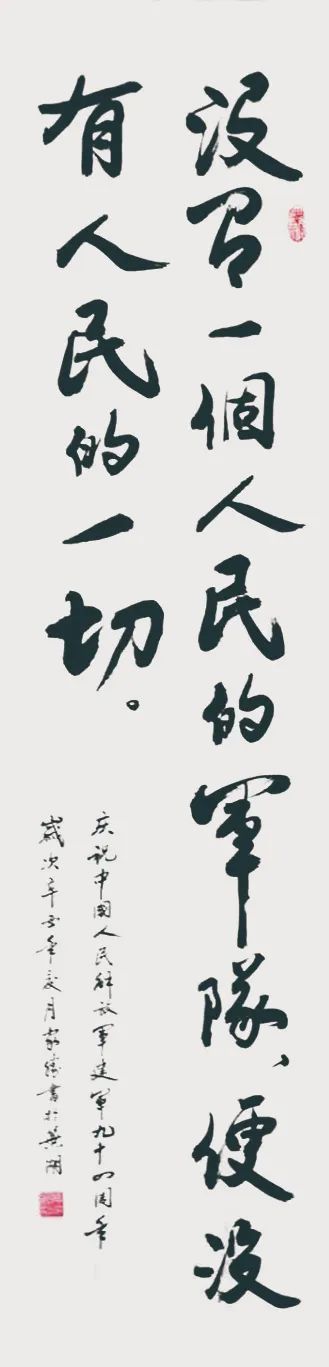 没有一個人民的軍隊、便没
有人民的一切。
庆祝中國人民解放軍建軍九十四周年
歲次辛丑年夏月書於